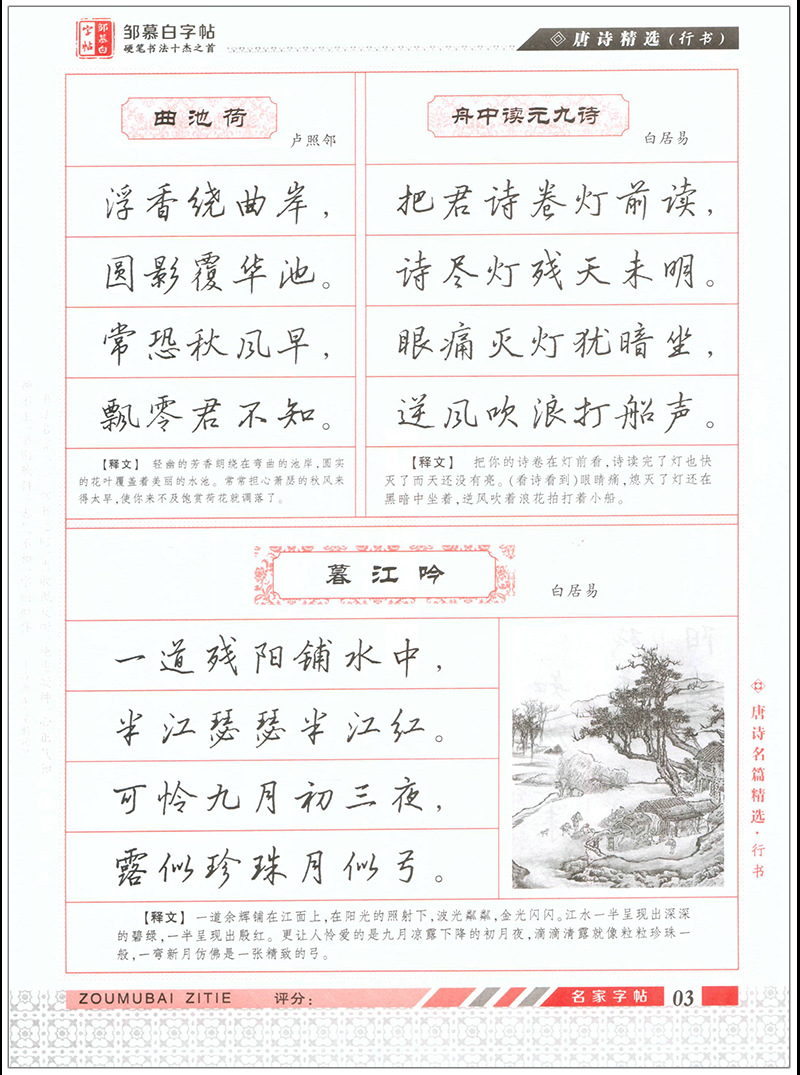 邹慕白字帖
邹慕白字帖
硬笔书法十杰之首
唐诗精选(行书)
曲池荷
卢照邻
浮香绕曲岸,
圆影覆华池。
常恐秋风早,
飘零君不知。
【释文】 轻幽的芳香朗绕在弯曲的池岸,圆实
的花叶覆盖着美丽的水池。常常担心萧瑟的秋风来
得太早,使你来不及饱赏荷花就调落了。
舟中读元九诗
白居易
把君诗卷灯前读,
诗尽灯残天未明。
眼痛灭灯犹暗坐,
逆风吹浪打船声。
【释文】 把你的诗卷在灯前看,诗读完了灯也快
灭了而天还没有亮。(看诗看到)眼睛痛,熄灭了灯还在
黑暗中坐着,逆风吹着浪花拍打着小船。
暮江吟
白居易
一道残阳铺水中,
半江瑟瑟半江红。
可怜九月初三夜,
露似珍珠月似弓。
【释文】 一道余辉铺在江面上,在阳光的照射下,波光粼粼,金光闪闪。江水一半呈现出深深
的碧绿,一半呈现出殷红。更让人怜爱的是九月凉露下降的初月夜,滴滴清露就像粒粒珍珠一
般,一弯新月仿佛是一张精致的弓。
唐诗名篇精选·行书
ZOUMUBAI ZITIE 评分:
名家字帖 03